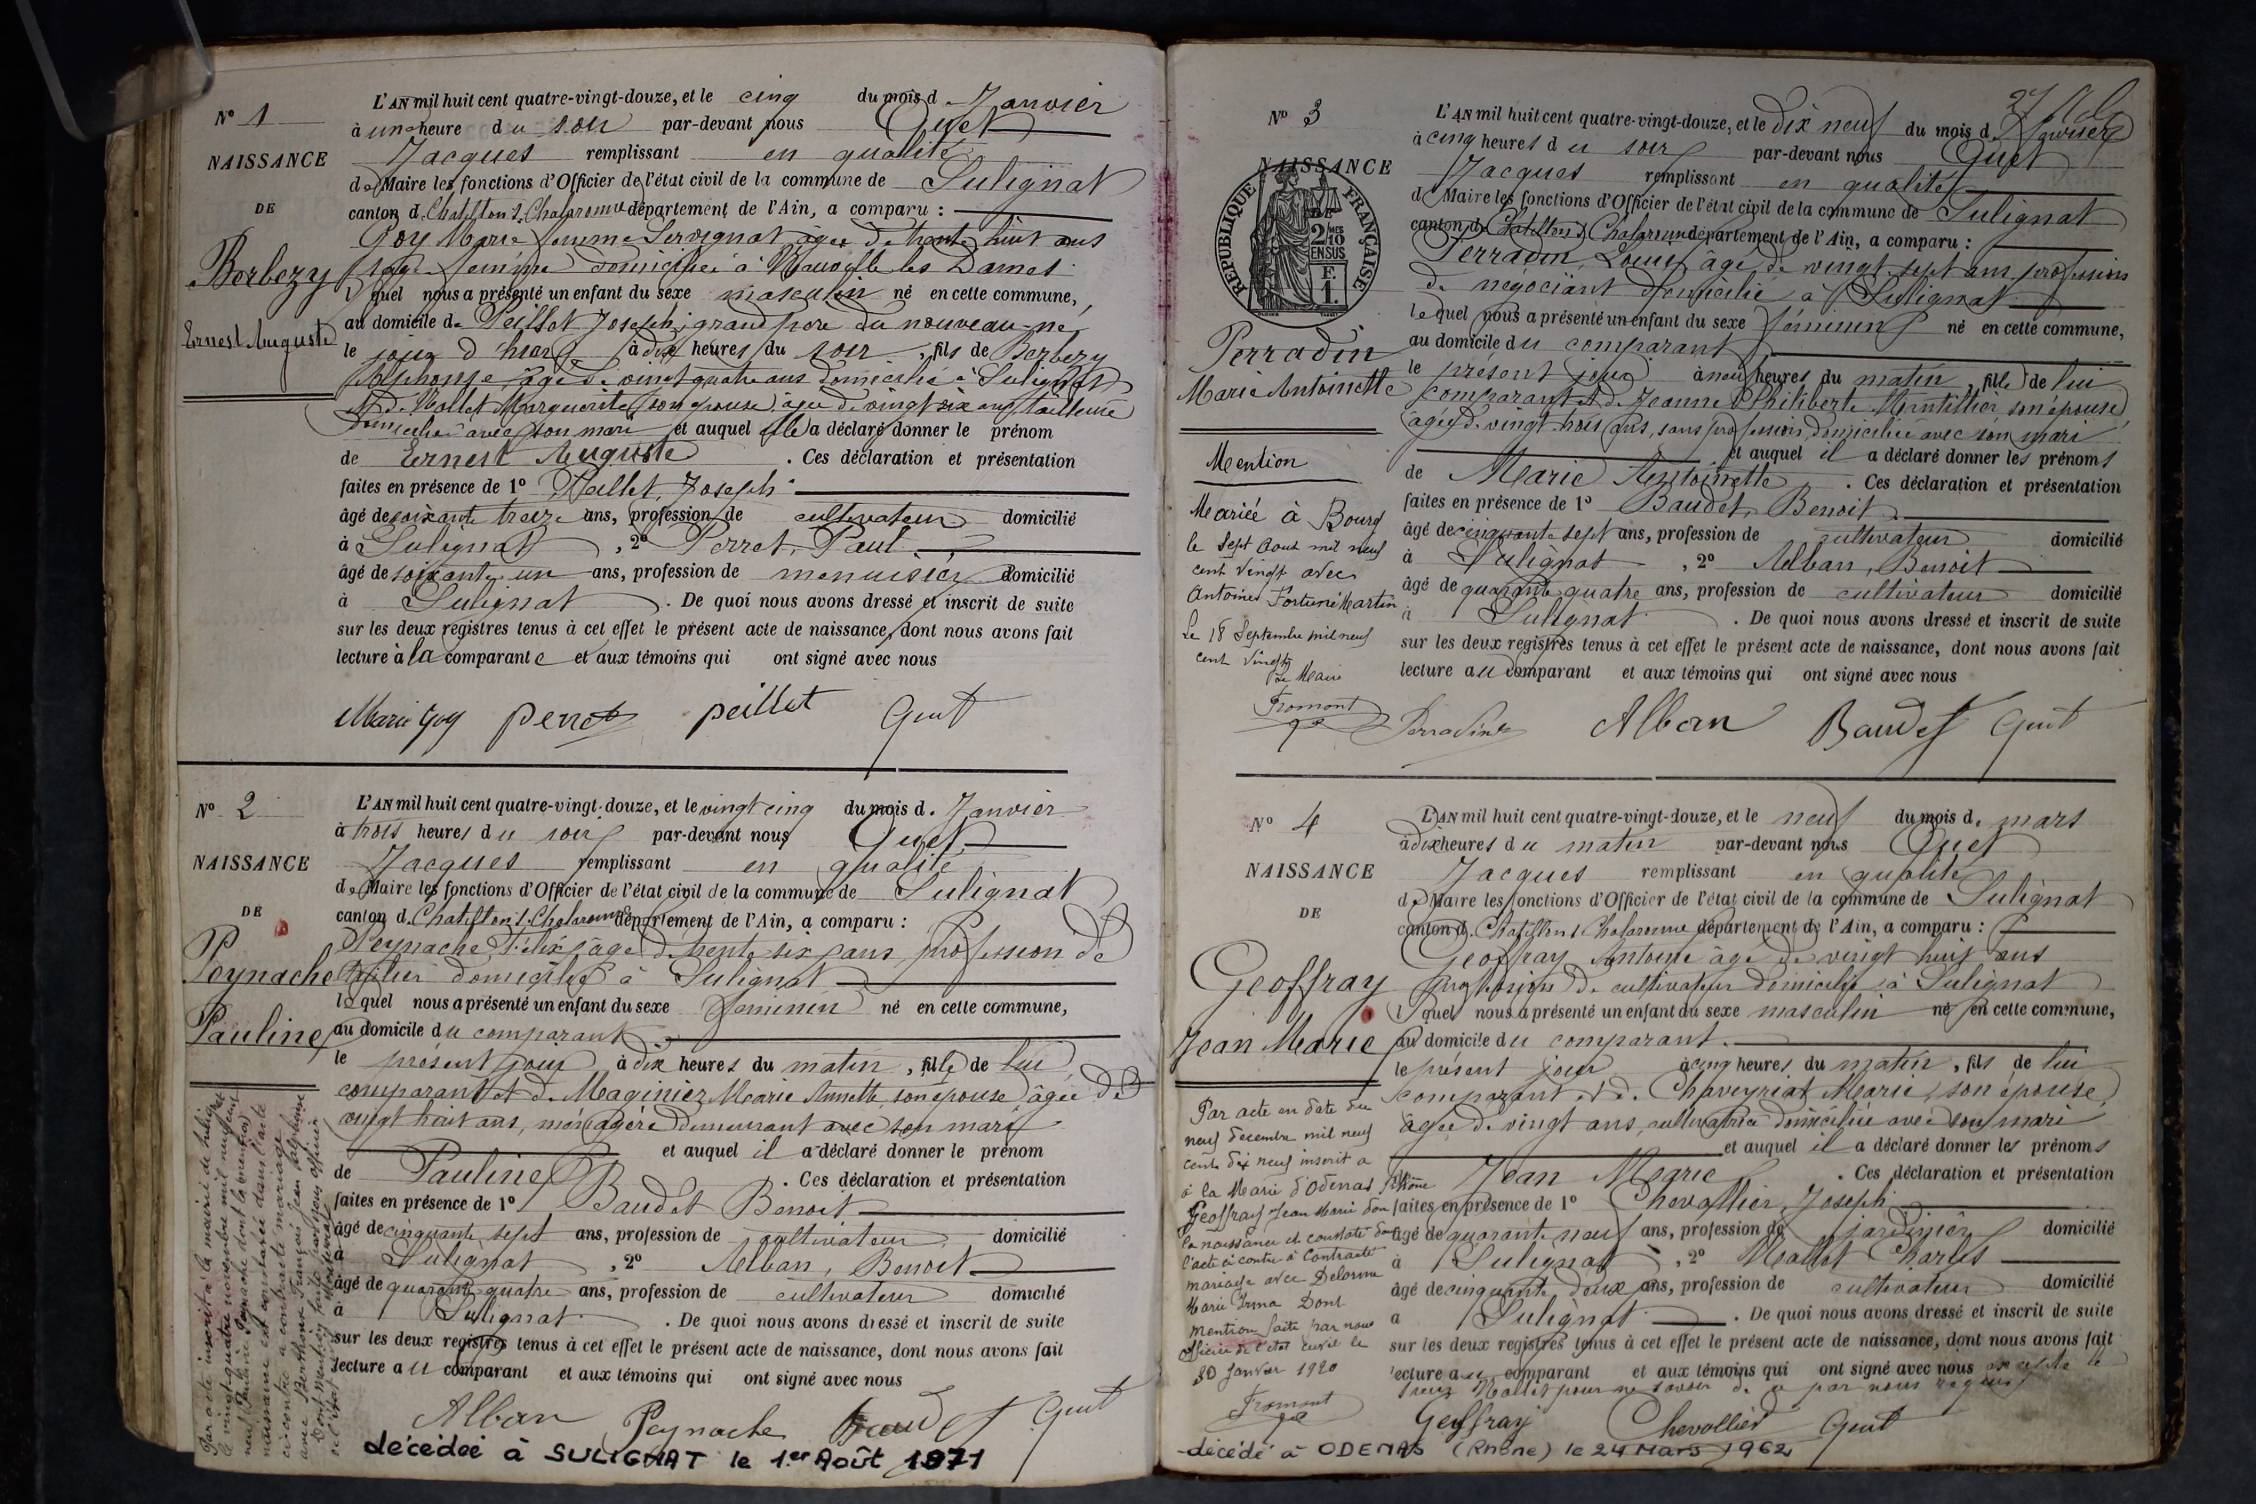 N° 1
NAISSANCE
DE
Berbezy
Ernest Auguste
L'AN mil huit cent quatre-vingt-douze, et le cinq du mois d Janvier
à une heure du soir par-devant nous Quet
Jacques remplissant en qualité
de Maire les fonctions d'Officier de l'état civil de la commune de Sulignat
canton d Chatillon s. Chalaronne département de l'Ain, a comparu :
Goy Marie femme Servignat âgée de trente huit ans
sage femme domiciliée à Neuville les Dames
l quel nous a présenté un enfant du sexe masculin né en cette commune,
au domicile de Peillet Joseph, grand père du nouveau-né
le jour d'hier à dix heures du soir, fils de Berbezy
Alphonse âgé de vingt quatre ans domicilié à Sulignat
et de Mallet Marguerite son épouse âgée de vingt six ans tailleuse
domiciliée avec son mari et auquel elle a déclaré donner le prénom
de Ernest Auguste. Ces déclaration et présentation
faites en présence de 1° Joseph
âgé de soixante treize ans, profession de cultivateur domicilié
à Sulignat, 2° Perret, Paul
âgé de soixante un ans, profession de menuisier domicilié
à Sulignat. De quoi nous avons dressé et inscrit de suite
sur les deux registres tenus à cet effet le présent acte de naissance, dont nous avons fait
lecture à la comparante et aux témoins qui ont signé avec nous
Marie Goy Perret peillet Quet
N° 2
NAISSANCE
DE
Peynache
Pauline
L'AN mil huit cent quatre-vingt-douze, et le vingt cinq du mois d. Janvier
à trois heures du soir par-devant nous Quet
Jacques remplissant en qualité
de Maire les fonctions d'Officier de l'état civil de la commune de Sulignat
canton d. Chatillon s. Chalaronne département de l'Ain, a comparu :
Peynache, Félix âgé de trente six ans, profession de
domicilié à Sulignat
lequel nous a présenté un enfant du sexe féminin né en cette commune,
au domicile du comparant
le présent jour à dix heures du matin, fille de lui
comparant et de Maginier Marie Annette, son épouse âgée de
vingt huit ans, ménagère demeurant avec son mari
et auquel il a déclaré donner le prénom
de Pauline. Ces déclaration et présentation
faites en présence de 1° Baudet Benoit
âgé de cinquante sept ans, profession de cultivateur domicilié
à Sulignat, 2° Alban, Benoit
âgé de quarante quatre ans, profession de cultivateur domicilié
à Sulignat. De quoi nous avons dressé et inscrit de suite
sur les deux registres tenus à cet effet le présent acte de naissance, dont nous avons fait
lecture au comparant et aux témoins qui ont signé avec nous
Alban Peynache Baudet Quet
décédée à SULIGNAT le 1er Août 1971
Par acte inscrit à la mairie de Sulignat
le vingt-quatre novembre mil neuf cent
neuf, Pauline Peynache dont la
naissance est constatée dans l'acte
ci-contre a contracté mariage
avec Berthoux François Jean
Dont mention faite par nous officier
de l'état civil
27
N° 3
NAISSANCE
RÉPUBLIQUE FRANÇAISE
2 MES
10
EN SUS
F.
1.
Perradin
Marie Antoinette
Mention
Mariée à Bourg
le Sept Aout mil neuf
cent vingt avec
Antoine Fortuné Martin
Le 18 Septembre mil neuf
cent vingt
Le Maire
Fromont
L'AN mil huit cent quatre-vingt-douze, et le dix neuf du mois d
à cinq heures du soir par-devant nous Quet
Jacques remplissant en qualité
d Maire les fonctions d'Officier de l'état civil de la commune de Sulignat
canton d. Chatillon s Chalaronne département de l'Ain, a comparu :
Perradin, Louis âgé de vingt sept ans profession
de négociant domicilié à Sulignat
lequel nous a présenté un enfant du sexe féminin né en cette commune,
au domicile du comparant
le présent jour à neuf heures du matin, fille de lui
comparant et de Jeanne Philiberte Montillier son épouse
âgée de vingt-trois ans, sans profession, domiciliée avec son mari
et auquel il a déclaré donner les prénoms
de Marie Antoinette. Ces déclaration et présentation
faites en présence de 1° Baudet, Benoit
âgé de cinquante sept ans, profession de cultivateur domicilié
à Sulignat, 2° Alban, Benoit
âgé de quarante quatre ans, profession de cultivateur domicilié
à Sulignat. De quoi nous avons dressé et inscrit de suite
sur les deux registres tenus à cet effet le présent acte de naissance, dont nous avons fait
lecture au comparant et aux témoins qui ont signé avec nous
Perradin Alban Baudet Quet
N° 4
NAISSANCE
DE
Geoffray
Jean Marie
Par acte en date du
neuf decembre mil neuf
cent dix neuf inscrit a
à la Mairie d'Odenas Rhône
Geoffray Jean Marie dont
la naissance est constatée dans
l'acte ci contre à Contracté
mariage avec Delorme
Marie Irma Dont
mention faite par nous
officier de l'état civil le
30 Janvier 1920
Fromont
L'AN mil huit cent quatre-vingt-douze, et le neuf du mois d. mars
à dix heures du matin par-devant nous Quet
Jacques remplissant en qualité
de Maire les fonctions d'Officier de l'état civil de la commune de Sulignat
canton d. Chatillon s Chalaronne département de l'Ain, a comparu :
Geoffray Antoine âgé de vingt huit ans
profession de cultivateur domicilié à Sulignat
l quel nous a présenté un enfant du sexe masculin né en cette commune,
au domicile du comparant.
le présent jour à cinq heures du matin, fils de lui
comparant et d. Chaveyriat Marie, son épouse
âgée de vingt ans, cultivatrice domiciliée avec son mari
et auquel il a déclaré donner les prénoms
Jean Marie. Ces déclaration et présentation
faites en présence de 1° Chevallier, Joseph
âgé de quarante neuf ans, profession de jardinier domicilié
à Sulignat, 2° Mallet Charles
âgé de cinquante deux ans, profession de cultivateur domicilié
à Sulignat. De quoi nous avons dressé et inscrit de suite
sur les deux registres tenus à cet effet le présent acte de naissance, dont nous avons fait
lecture au comparant et aux témoins qui ont signé avec nous excepté le
Sieur Mallet pour ne savoir de ce par nous requis
Geoffray Chevollier Quet
décédé à ODENAS (Rhône) le 24 Mars 1962